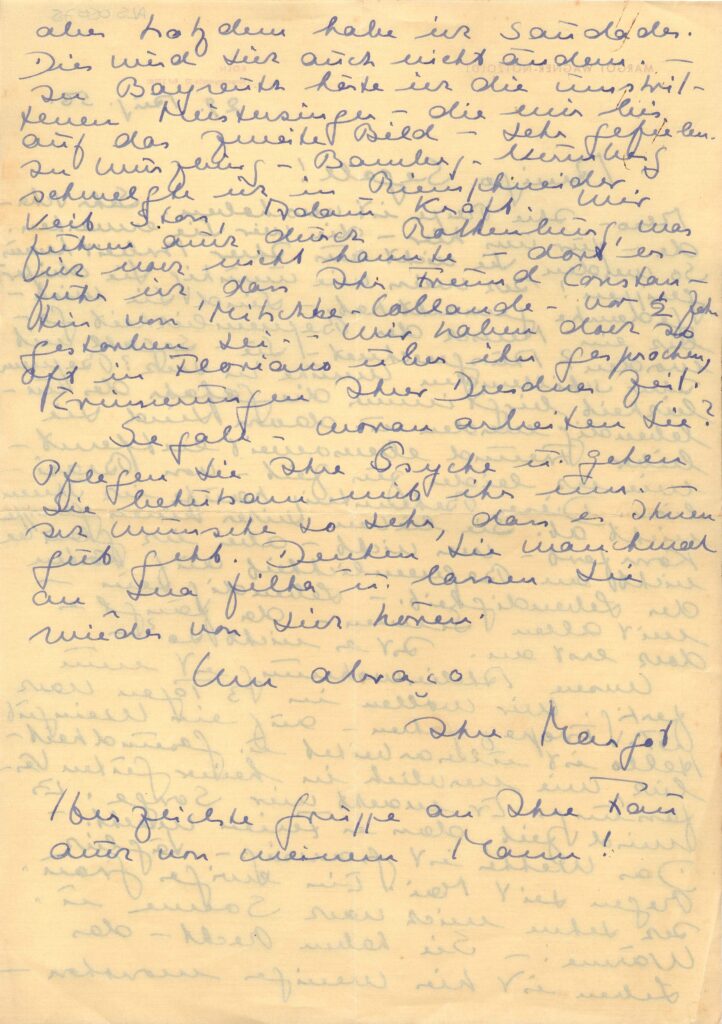 aber trotzdem habe ich Saudades.
Dies wird sich auch nicht ändern. –
In Bayreuth hörte ich die umstrit-
tenen Meistersinger – die mir bis
auf das zweite Bild – sehr gefielen.
In Würzburg – Bamberg – Nürnberg
schwelgte ich in Riemenschneider
Veit Stoss, Adam Kraft. Wir
fuhren auch durch Rothenburg, was
ich noch nicht kannte – dort er-
fuhr ich, dass Ihr Freund Constan-
tin von Mitschke-Collande – vor ½ Jahr
gestorben sei – Wir haben doch so
oft in Floriano über ihn gesprochen,
Erinnerungen Ihrer Dresdner Zeit.
Segall – woran arbeiten Sie?
Pflegen Sie Ihre Psyche u. gehen
Sie behutsam mit ihr um. –
Ich wünsche so sehr, dass es Ihnen
gut geht. Denken Sie manchmal
an Sua filha u. lassen Sie
wieder von sich hören.
Um abraço
Ihre Margot
Herzlichste Grüsse an Ihre Frau
auch von meinem Mann!